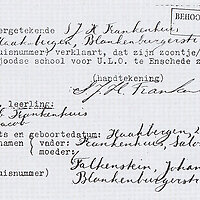 BEHOO
ergetekende S J H Frankenhuis
Haaksbergen, Blankenburgerstr
uisnummer) verklaart, dat zijn zoontje/
joodse school voor U.L.O. te Enschede z
(handtekening)
S J H Franken
leerling:
Frankenhuis
Jacob
ts en geboortedatum: Haaksbergen, 2
namen { vader: Frankenhuis, Salo
moeder:
Falkenstein, Johan
uisnummer) Blankenburgerstr